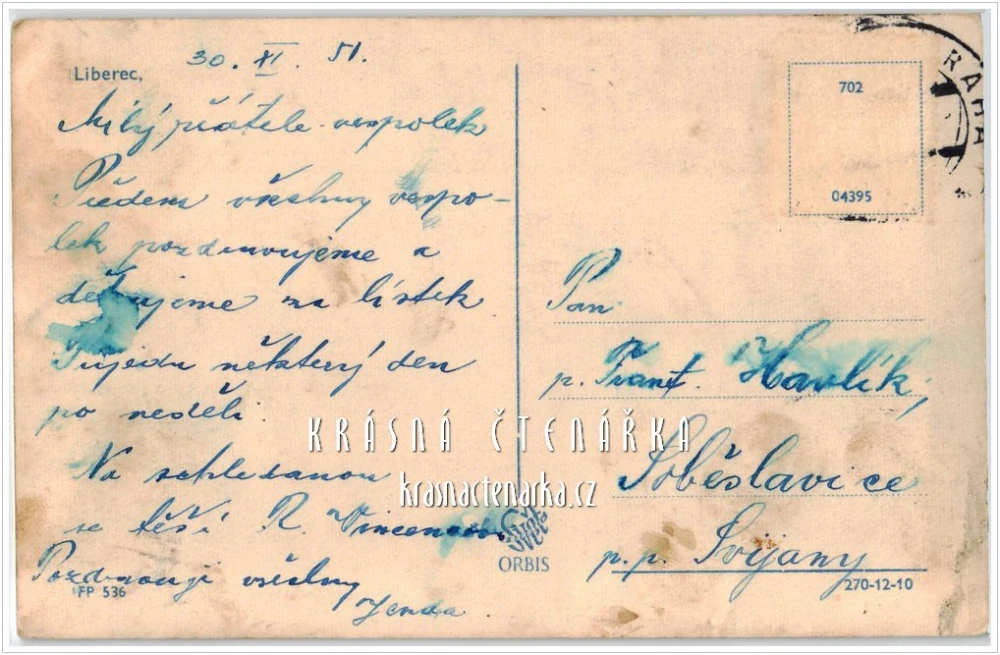 Liberec,
30. XI. 51.
Milý přátele vespolek
Předem všechny vespo-
lek pozdravujeme a
děkujeme za lístek
Přijedu některý den
po neděli.
Na schledanou
se těší R. Vincencovi
Pozdravuji všechny
Jenda.
FP 536
702
04395
RAHA
Pan
p. Frant. Havlík,
Soběslavice
p.p. Svijany
ORBIS
270-12-10
KRÁSNÁ ČTENÁŘKA
krasnactenarka.cz